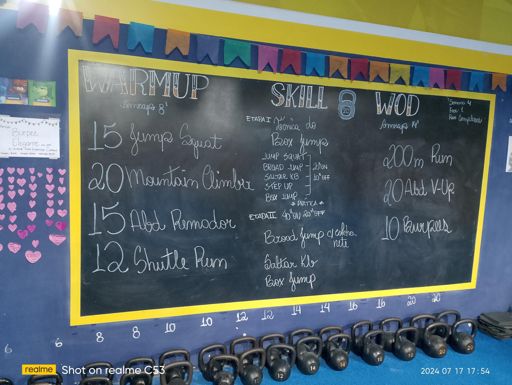 WARMUP
Amrap 8'
15 Jump Squat
20 Mountain Climber
15 Abd Remador
12 Shutle Run
SKILL
ETAPA I
Box jump
JUMP SQUAT
BROAD JUMP
STEP UP
BOX JUMP
ETAPA II 40"ON 20"OFF
Broad jump
Saltar Kb
Box jump
WOD
200m Run
20 Abd V-Up
10 Burpees
Semana 4
Burpee
6 6 8 8 10 10 12 12 14 16 16 20 20
realme Shot on realme C53
2024 07 17 17:54